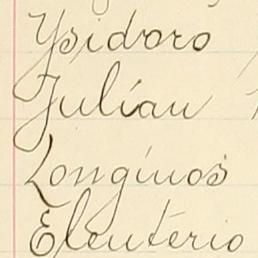 Ysidoro
Julían
Longínos
Eleutério